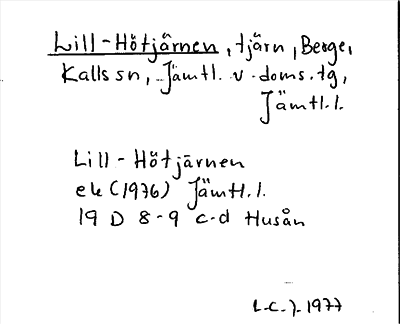 Lill-Hötjärnen, tjärn, Berge,
Kalls sn, Jämtl. v. doms. tg,
Jämtl. l.
Lill-Hötjärnen
ek (1976) Jämtl. l.
19 D 8-9 c-d Husån
L.C.J. 1977